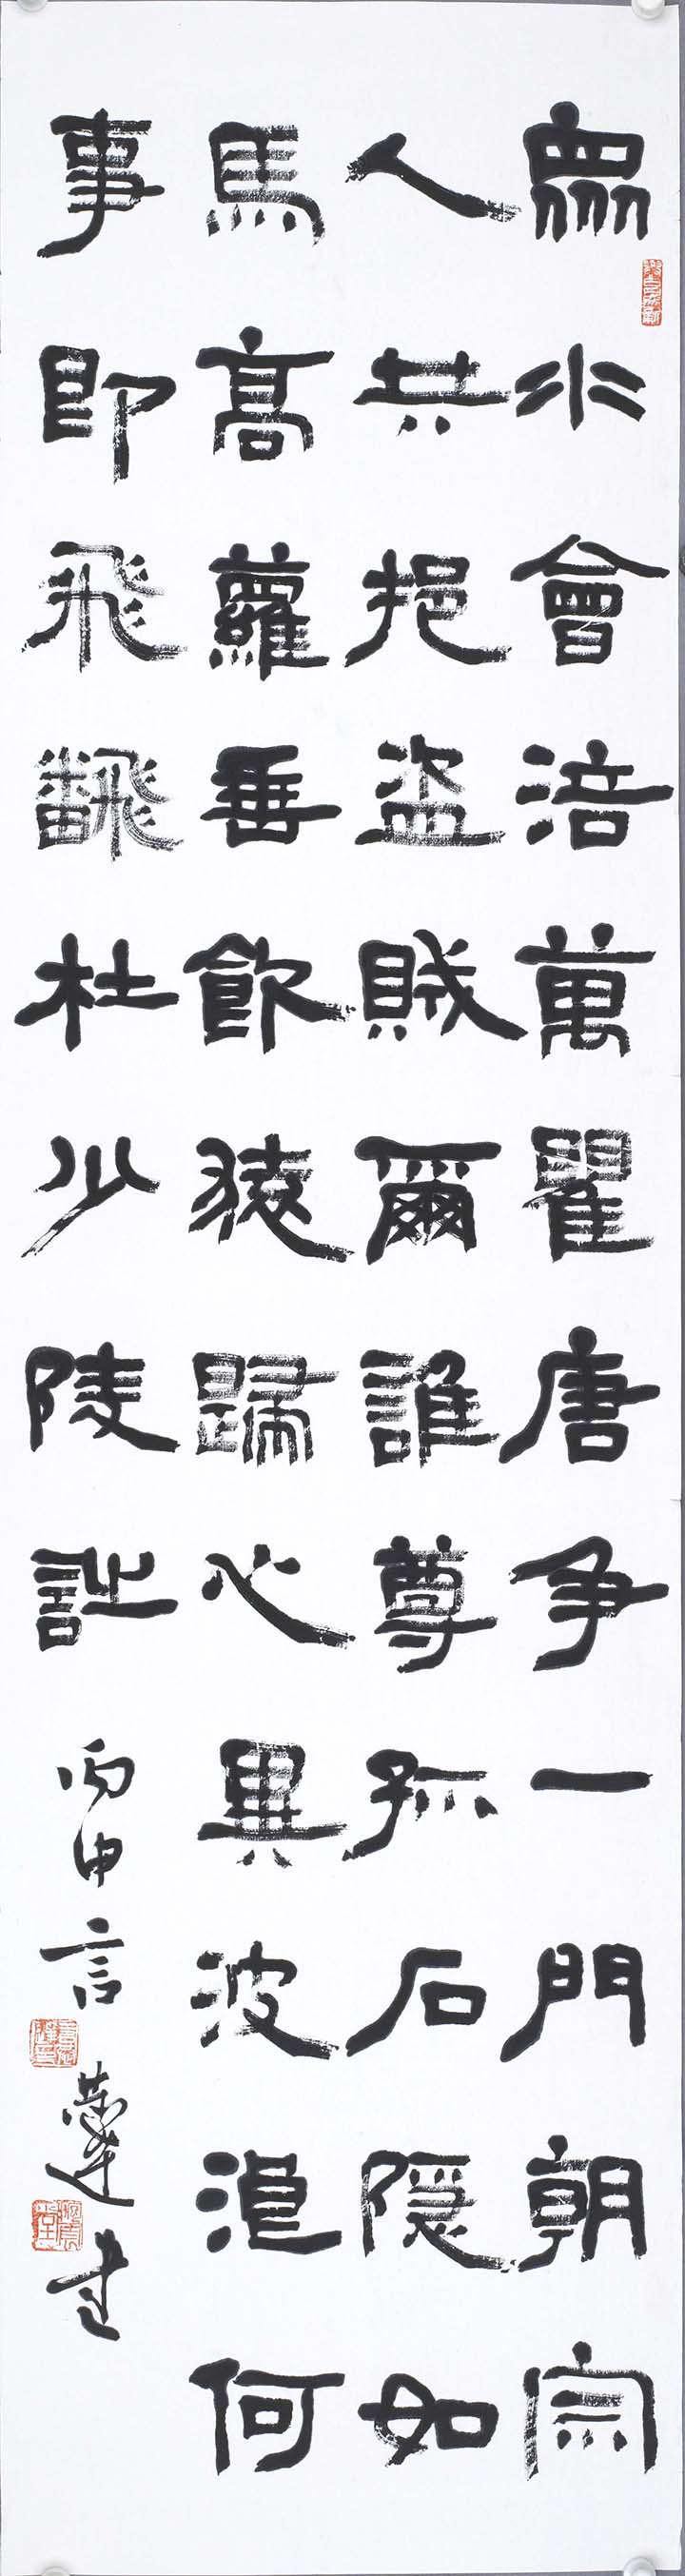 眾水會涪萬瞿唐争一門朝宗
人共挹盜賊爾誰尊孤石隱如
馬高蘿垂飲猿歸心異波浪何
事即飛飜杜少陵詩
丙申言恭達書